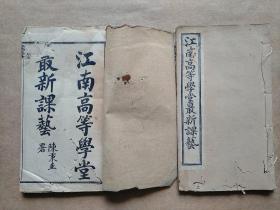 江南高等學堂
最新課藝
陳東立署
江南高等學堂最新課藝